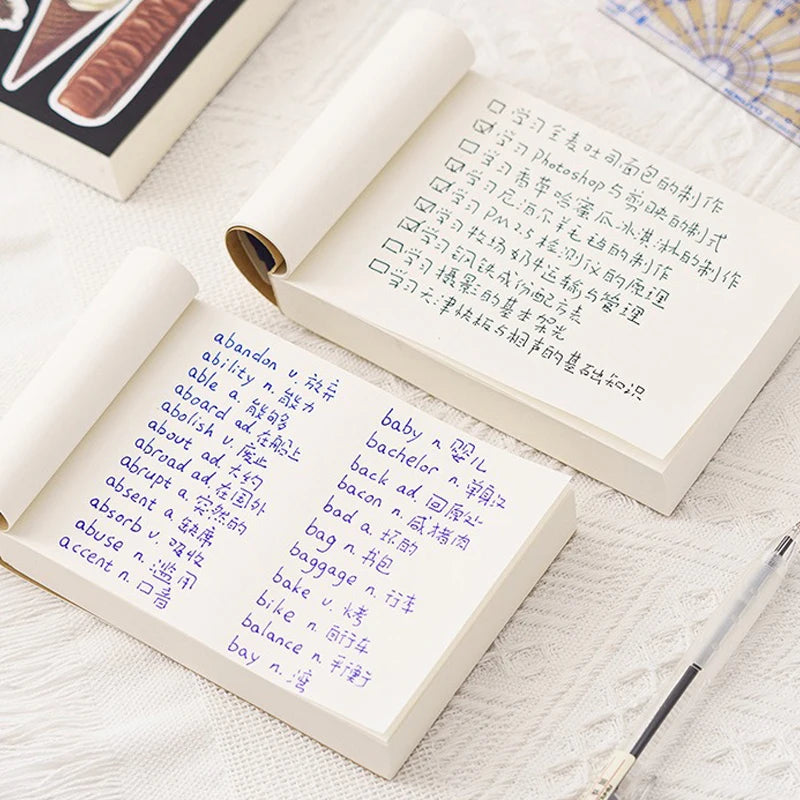 ☐学习全麦吐司面包的制作
☑学习Photoshop与剪映的制式
☐学习香草哈蜜瓜冰淇淋的制作
☑学习尼泊尔羊毛毡的制作
☑学习PM2.5检测仪的原理
☑学习牧场奶牛运输与管理
☑学习钢铁成份配方表
☐学习摄影的基本架光
☐学习天津快板与相声的基础知识
abandon v. 放弃
ability n. 能力
able a. 能够
aboard ad. 在船上
abolish v. 废止
about ad. 大约
abroad ad. 在国外
abrupt a. 突然的
absent a. 缺席
absorb v. 吸收
abuse n. 滥用
accent n. 口音
baby n. 婴儿
bachelor n. 单身汉
back ad. 回原处
bacon n. 咸猪肉
bad a. 坏的
bag n. 书包
baggage n. 行车
bake v. 烤
bike n. 自行车
balance n. 平衡
bay n. 湾